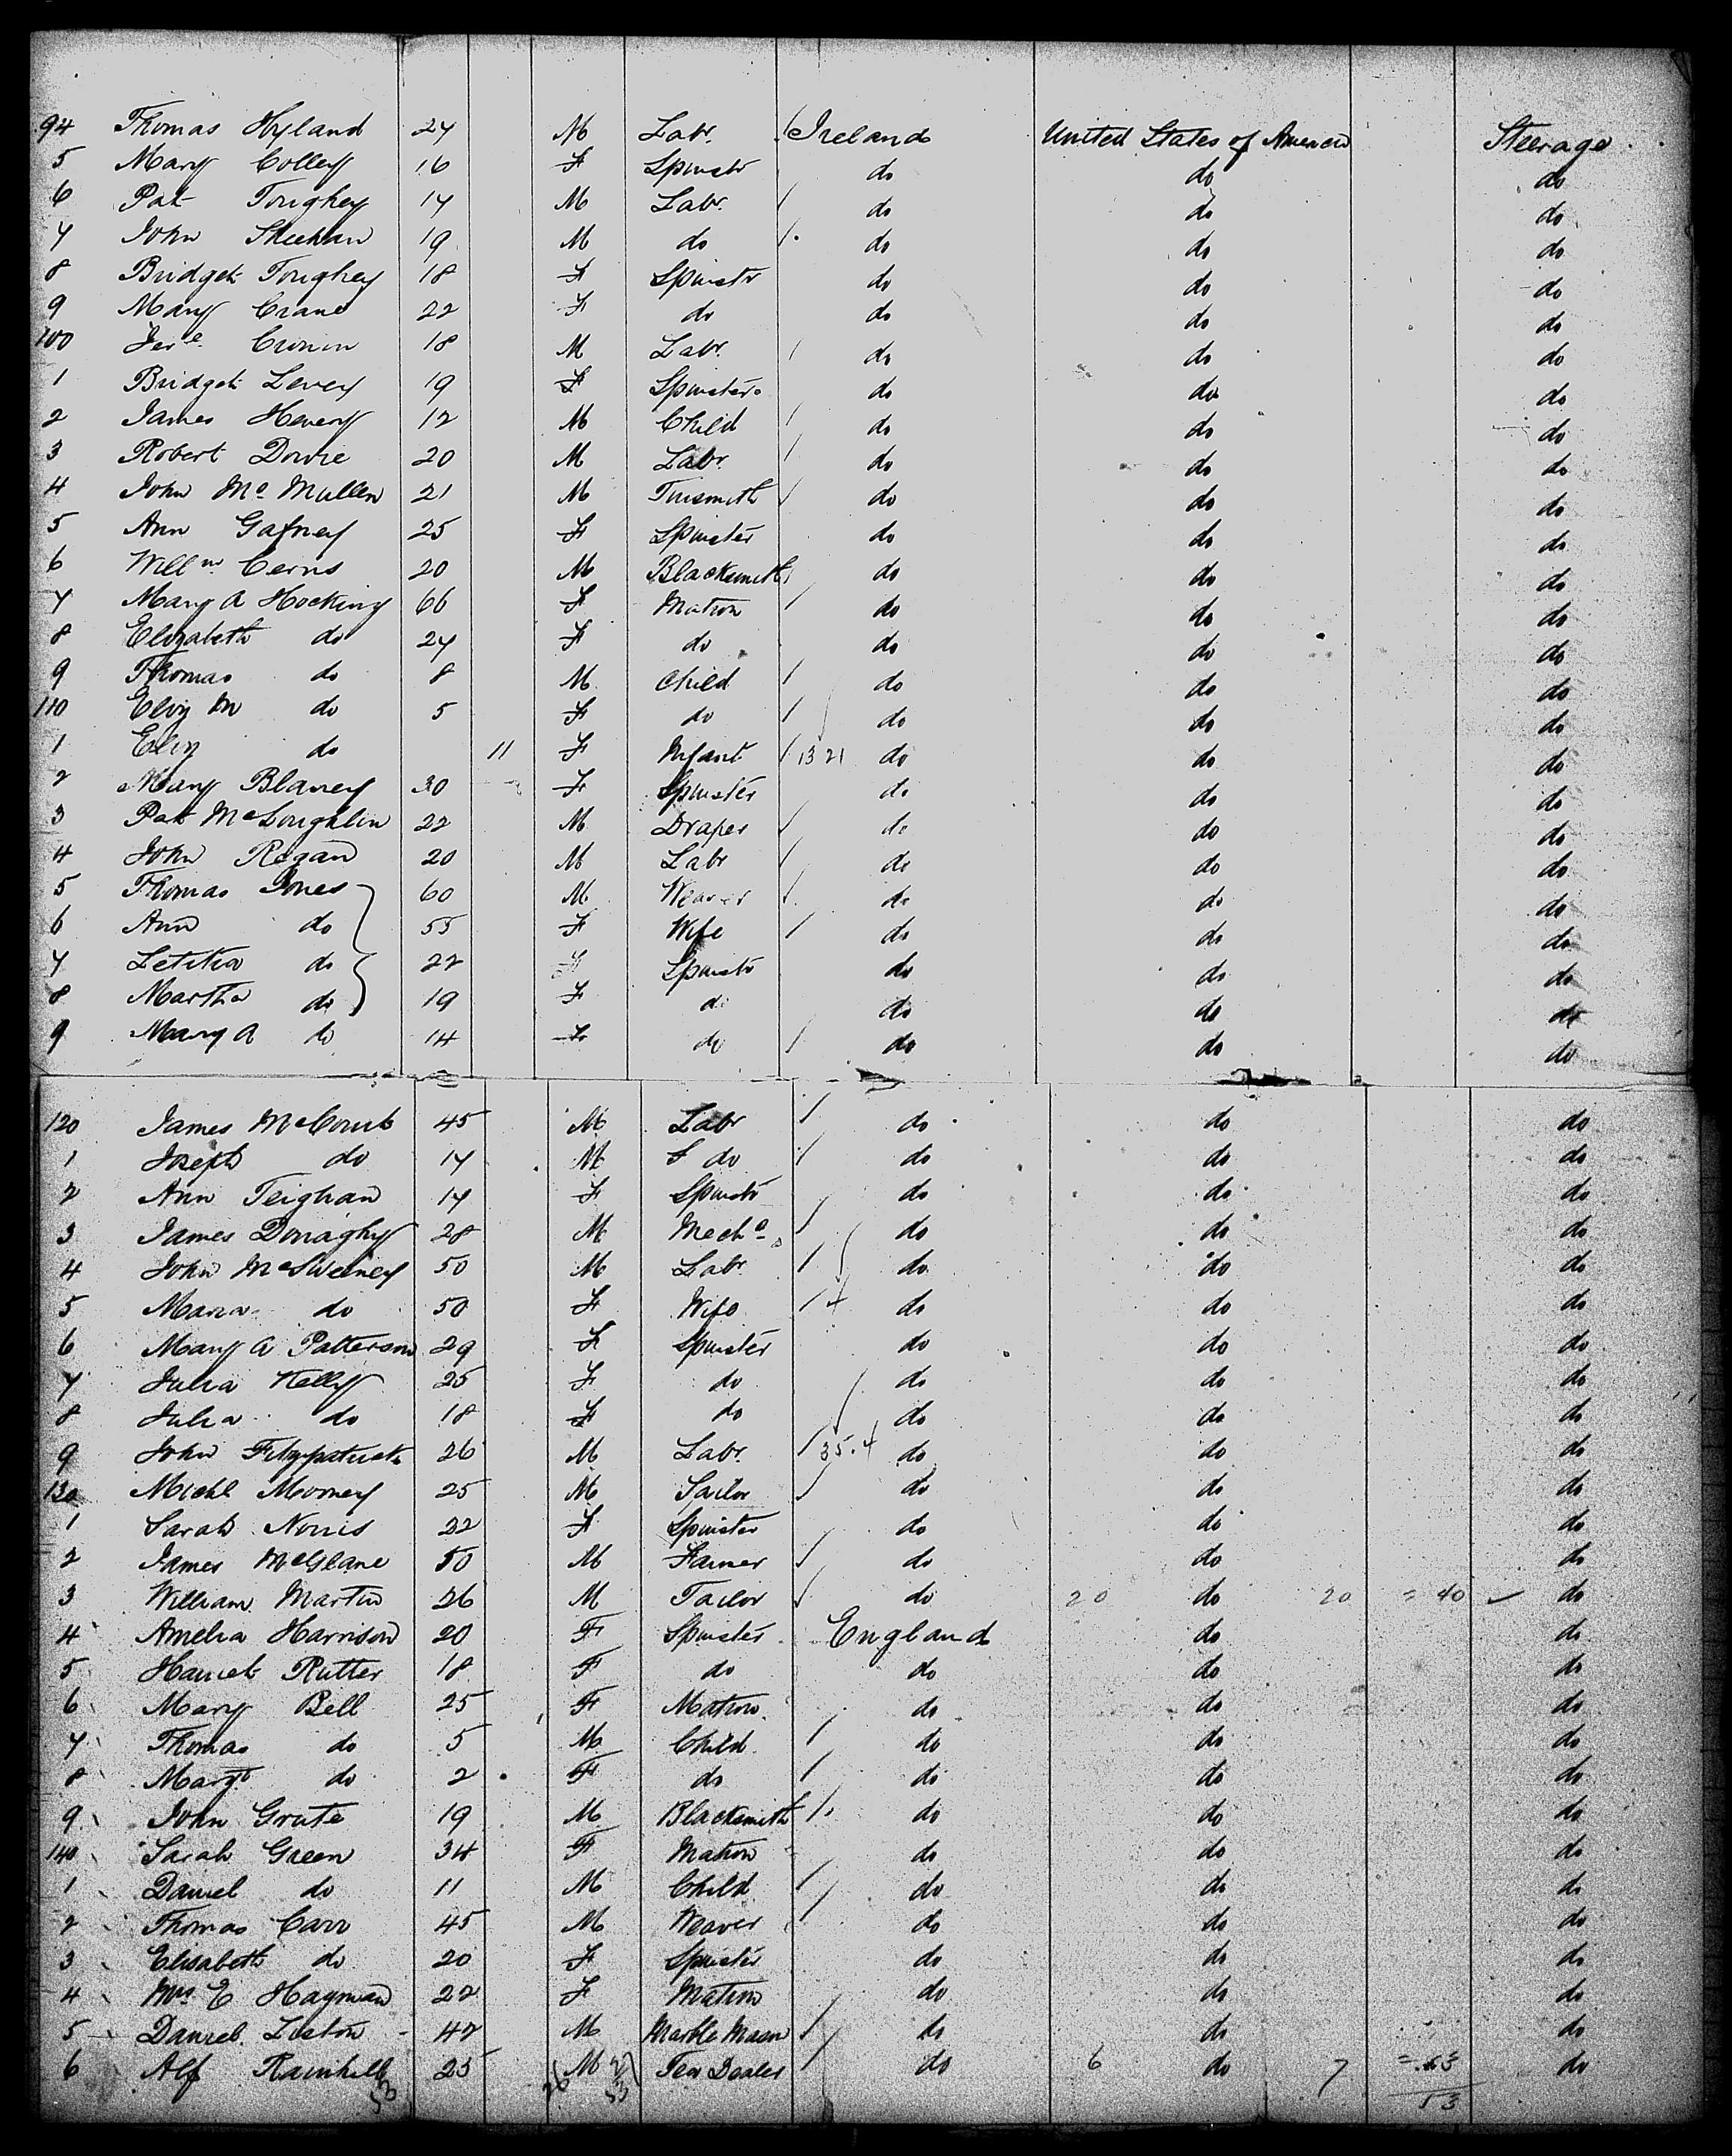 94 Thomas Hyland 27 M Labr. Ireland United States of America Steerage
5 Mary Colley 16 F Spinstr do do do
6 Pat Toughey 17 M Labr. do do do
7 John Sheehan 19 M do do do do
8 Bridget Toughey 18 F Spinstr do do do
9 Mary Crane 22 F do do do do
100 Jere Cronin 18 M Labr. do do do
1 Bridget Levey 19 F Spinster do do do
2 James Henery 12 M Child do do do
3 Robert Dowie 20 M Labr. do do do
4 John Mc Mullen 21 M Tinsmith do do do
5 Ann Gafney 25 F Spinster do do do
6 Willm Cerns 20 M Blacksmith do do do
7 Mary A Hocking 66 F Matron do do do
8 Elizabeth do 27 F do do do do
9 Thomas do 8 M Child do do do
110 Eliz M do 5 F do do do do
1 Eliz do 11 F Infant 13 21 do do do
2 Mary Blaney 30 F Spinster do do do
3 Pat McLoughlin 22 M Draper do do do
4 John Regan 20 M Labr do do do
5 Thomas Jones 60 M Weaver do do do
6 Ann do 55 F Wife do do do
7 Letitia do 22 F Spinstr do do do
8 Martha do 19 F do do do do
9 Mary A do 14 F do do do do
120 James McComb 45 M Labr do do do
1 Joseph do 17 M do do do do
2 Ann Teighan 17 F Spinstr do do do
3 James Donaghy 28 M Mechc do do do
4 John McSweeney 50 M Labr. do do do
5 Maria do 50 F Wife 4 do do do
6 Mary A Patterson 29 F Spinster do do do
7 Julia Kelly 25 F do do do do
8 Julia do 18 F do do do do
9 John Fitzpatrick 26 M Labr. 35.4 do do do
130 Michl Mooney 25 M Sailor do do do
1 Sarah Norris 22 F Spinster do do do
2 James McGlane 50 M Farmer do do do
3 William Martin 26 M Tailor do 20 do 20 = 40 do
4 Amelia Harrison 20 F Spinster England do do
5 Harriet Rutter 18 F do do do do
6 Mary Bell 25 F Matron do do do
7 Thomas do 5 M Child do do do
8 Margt do 2 F do do do do
9 John Grute 19 M Blacksmith do do do
140 Sarah Green 34 F Matron do do do
1 Daniel do 11 M Child do do do
2 Thomas Carr 45 M Weaver do do do
3 Elisabeth do 20 F Spinster do do do
4 Mrs E Hagman 22 F Matron do do do
5 Daniel Liston 42 M Marble Mason do do do
6 Alf Rainhill 25 M Tea Dealer do 6 do 7 do
53